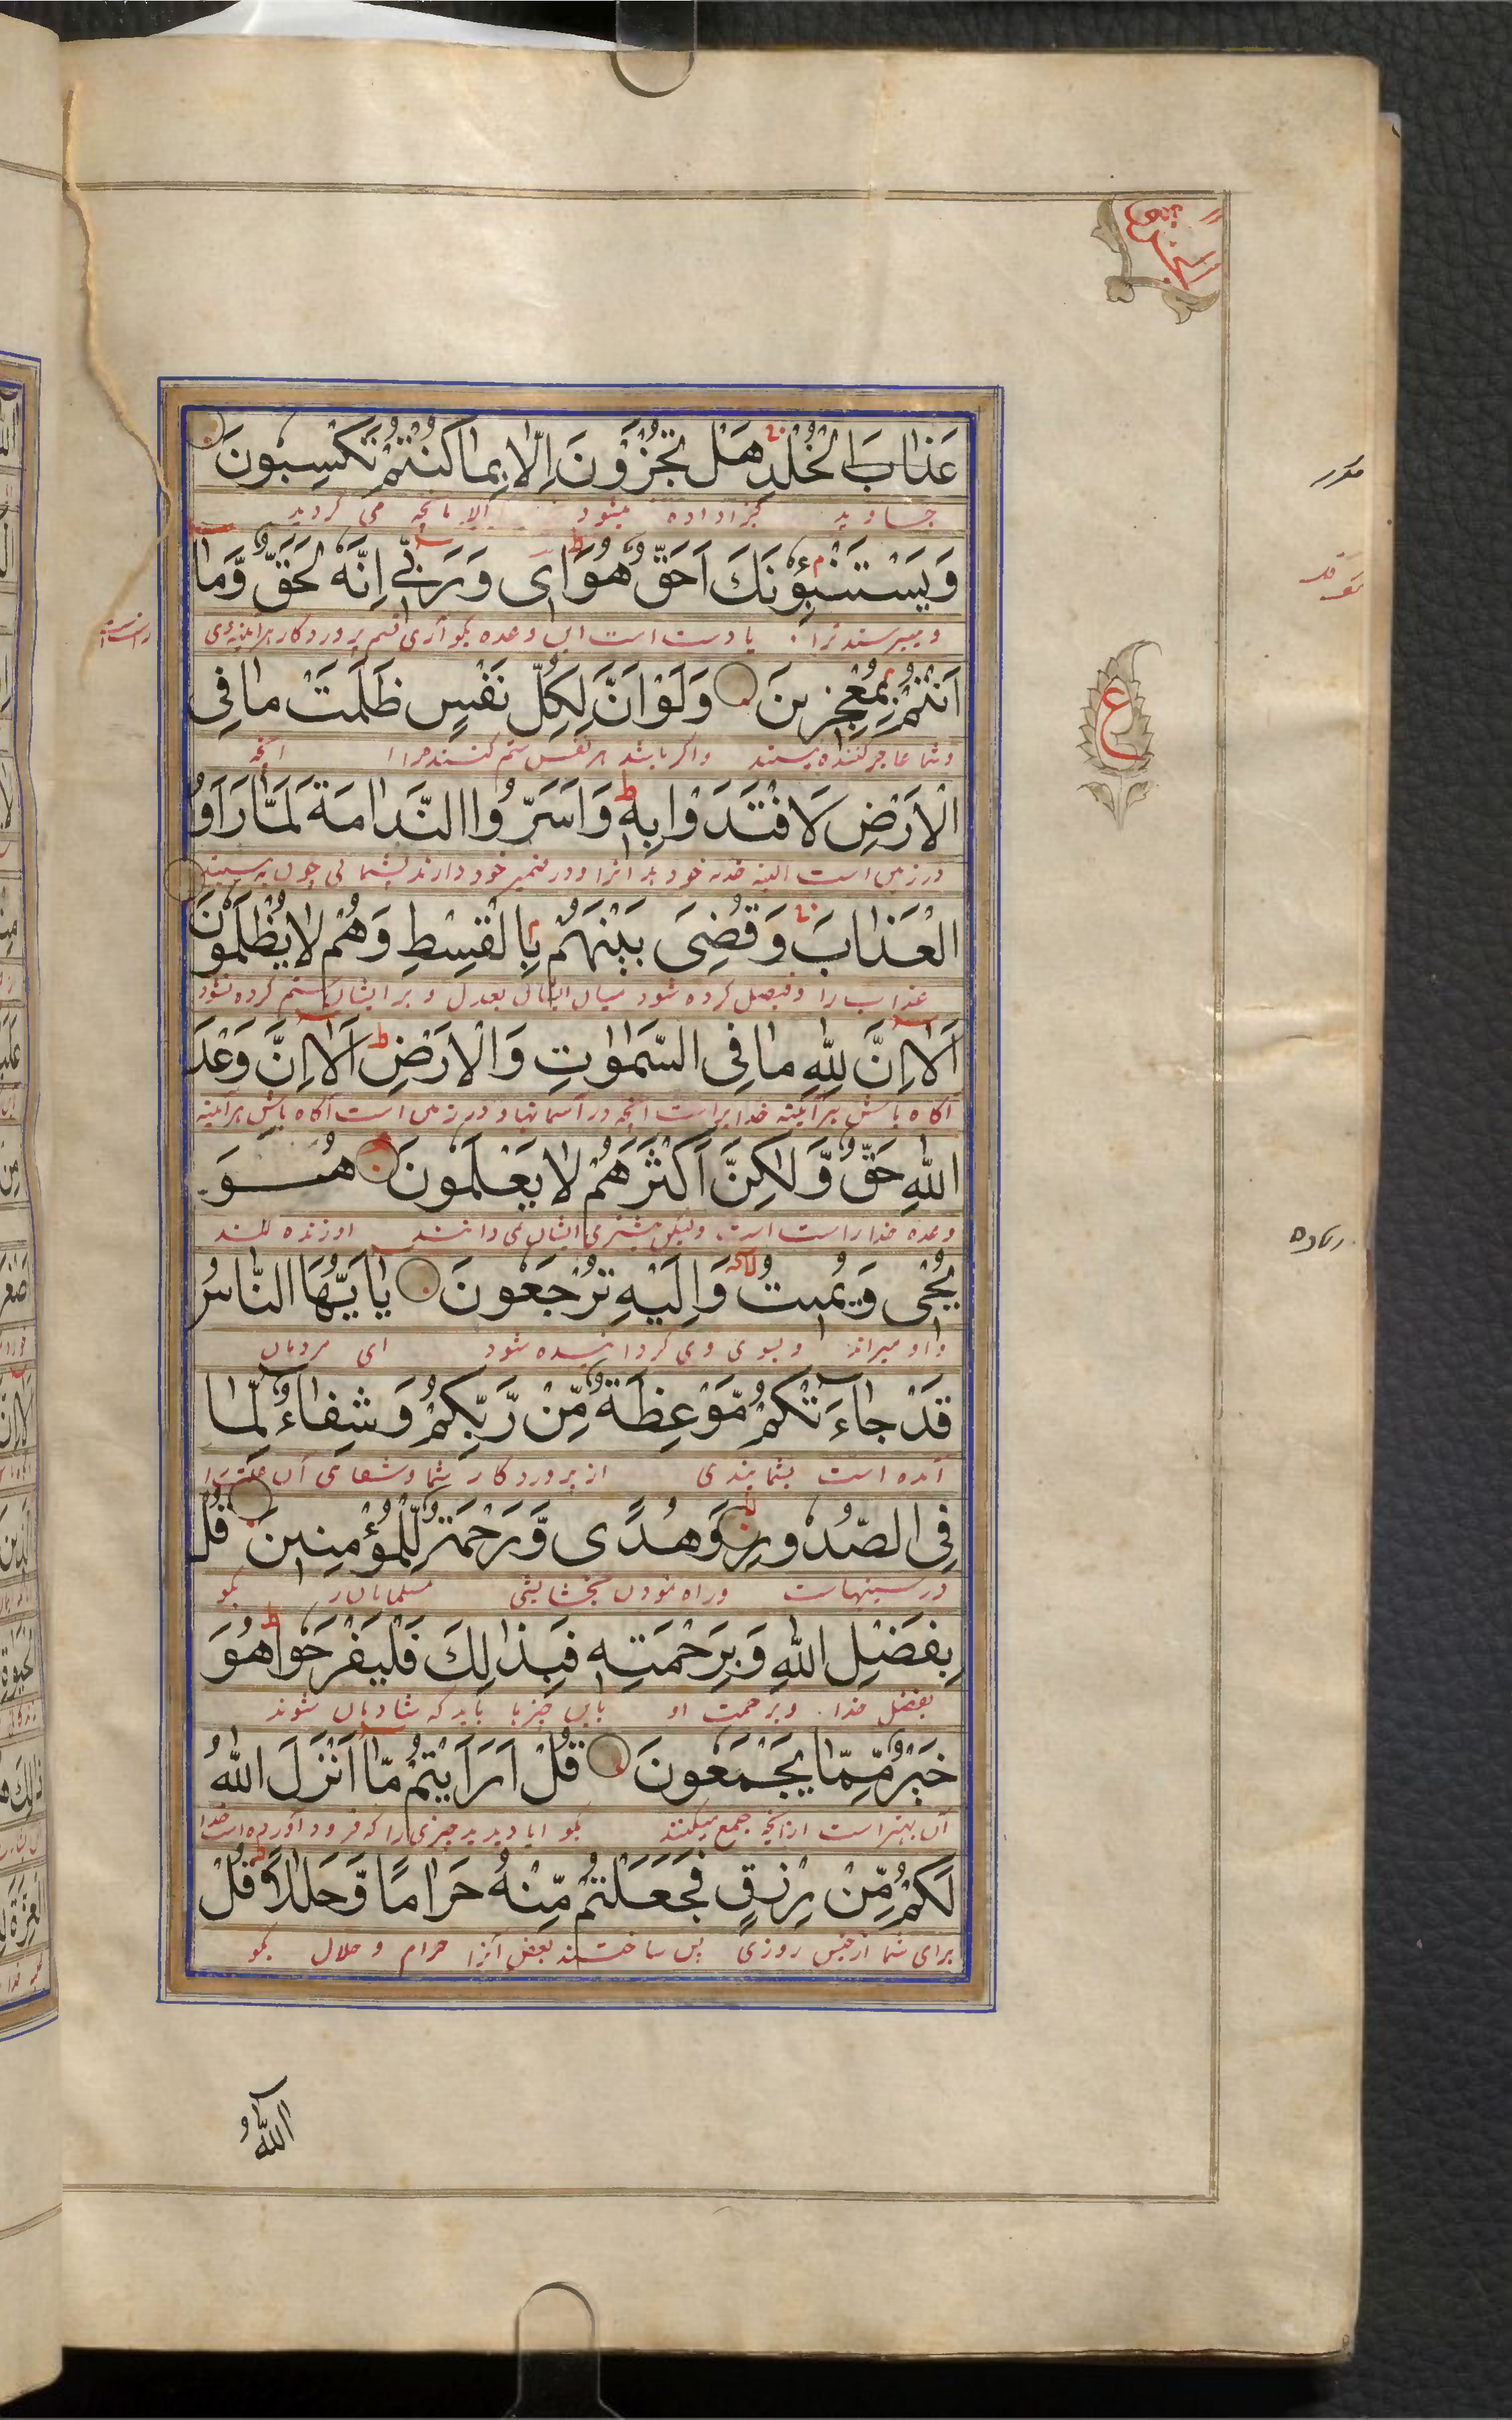 عَذَابَ الْخُلْدِ هَلْ تُجْزَوْنَ اِلَّا بِمَا كُنْتُمْ تَكْسِبُونَ
جاوید جزا داده میشود الا بآنچه می کردید
وَيَسْتَنْبِؤُنَكَ اَحَقٌّ هُوَ اى وَرَبِّي اِنَّهُ لَحَقٌّ وَّمَا
و میپرسند ترا یا راست است این وعده بگو آری قسم پروردگار هرآینه
اَنْتُمْ بِمُعْجِزِينَ وَلَوْ اَنَّ لِكُلِّ نَفْسٍ ظَلَمَتْ مَا فِى
و شما عاجز کننده نیستند و اگر باشد هر نفس ستم کننده را آنچه
الْاَرْضِ لَافْتَدَوْا بِهٖ وَاَسَرُّوا النَّدَامَةَ لَمَّا رَاَوُا
در زمین است البته فدیه خود بد آنرا و در ضمیر خود دارند پشمانی چون به بینند
الْعَذَابَ وَقُضِىَ بَيْنَهُمْ بِالْقِسْطِ وَهُمْ لَا يُظْلَمُونَ
عذاب را و فیصل کرده شود میان ایشان بعدل و بر ایشان ستم کرده نشود
اَلَا اِنَّ لِلّٰهِ مَا فِى السَّمٰوٰتِ وَالْاَرْضِ اَلَا اِنَّ وَعْدَ
آگاه باش هرآئینه خدایراست آنچه در آسمانها و در زمین است آگاه باش هرآئینه
اللّٰهِ حَقٌّ وَّلٰكِنَّ اَكْثَرَهُمْ لَا يَعْلَمُونَ هُوَ
وعده خدا راست است ولیکن بیشتری ایشان نمی دانند او زنده کند
يُحْىٖ وَيُمِيتُ وَاِلَيْهِ تُرْجَعُونَ يَا اَيُّهَا النَّاسُ
و او میراند و بسوی وی گردانیده شود ای مردمان
قَدْ جَاءَتْكُمْ مَّوْعِظَةٌ مِّنْ رَّبِّكُمْ وَشِفَاءٌ لِّمَا
آمده است بشما پندی از پروردگار شما و شفای آن علت را
فِى الصُّدُورِ وَهُدًى وَّرَحْمَةٌ لِّلْمُؤْمِنِينَ قُلْ
در سینهاست و راه نمودن بخشایشی مسلمانان را بگو
بِفَضْلِ اللّٰهِ وَبِرَحْمَتِهٖ فَبِذٰلِكَ فَلْيَفْرَحُوا هُوَ
بفضل خدا و برحمت او باین چیزها باید که شادمان شوند
خَيْرٌ مِّمَّا يَجْمَعُونَ قُلْ اَرَاَيْتُمْ مَّا اَنْزَلَ اللّٰهُ
آن بهتر است از آنچه جمع میکنند بگو آیا دیدید چیزی را که فرود آورده است خدا
لَكُمْ مِّنْ رِزْقٍ فَجَعَلْتُمْ مِّنْهُ حَرَامًا وَّحَلٰلًا قُلْ
برای شما از جنس روزی پس ساختند بعض آنرا حرام و حلال بگو
ع
آللّٰهُ